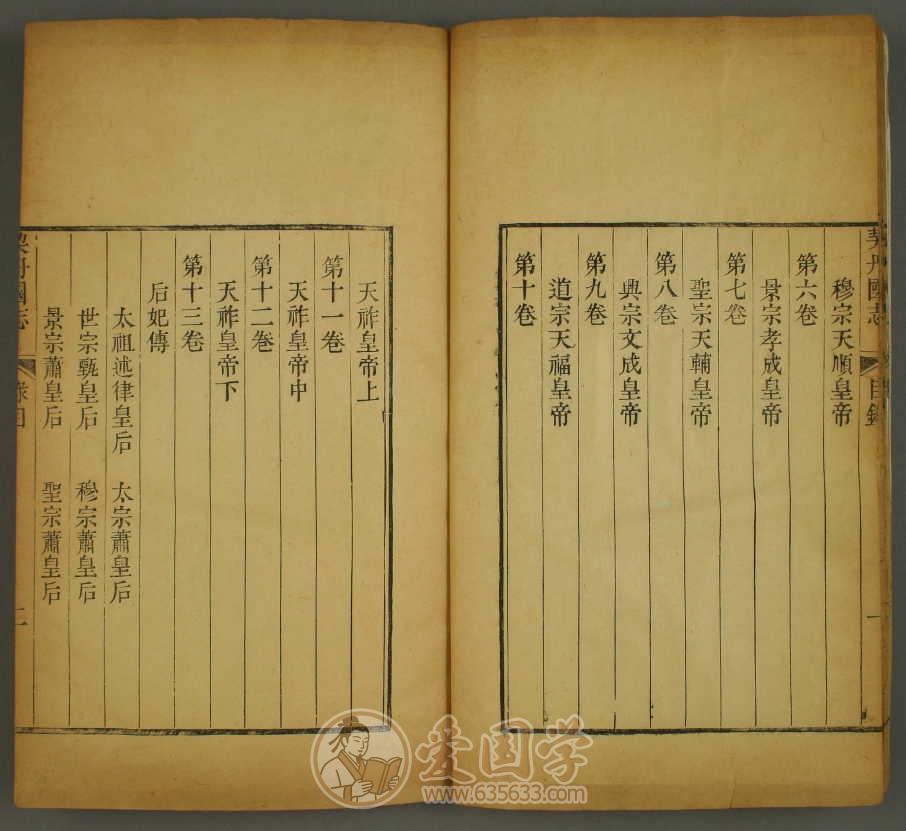 契丹國志 目錄 一
穆宗天順皇帝
第六卷
景宗孝成皇帝
第七卷
聖宗天輔皇帝
第八卷
興宗文成皇帝
第九卷
道宗天福皇帝
第十卷
天祚皇帝上
第十一卷
天祚皇帝中
第十二卷
天祚皇帝下
第十三卷
后妃傳
太祖述律皇后 太宗蕭皇后
世宗甄皇后 穆宗蕭皇后
景宗蕭皇后 聖宗蕭皇后
契丹國志 目錄 二
爱国学
www.635633.com